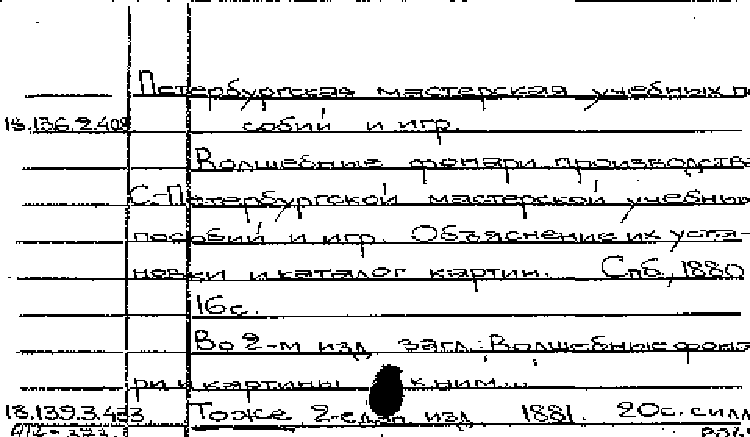 Петербургская мастерская учебных по
18.136.2.408 собий и игр.
Волшебные фонари производства
С.-Петербургской мастерской учебных
пособий и игр. Объяснение их уста-
новки и каталог картин. Спб, 1880
16с.
Во 2-м изд. загл.: Волшебные фона
ри и картины к ним...
18.139.3.433 Тоже 2-е изд. 1881. 20с. силл